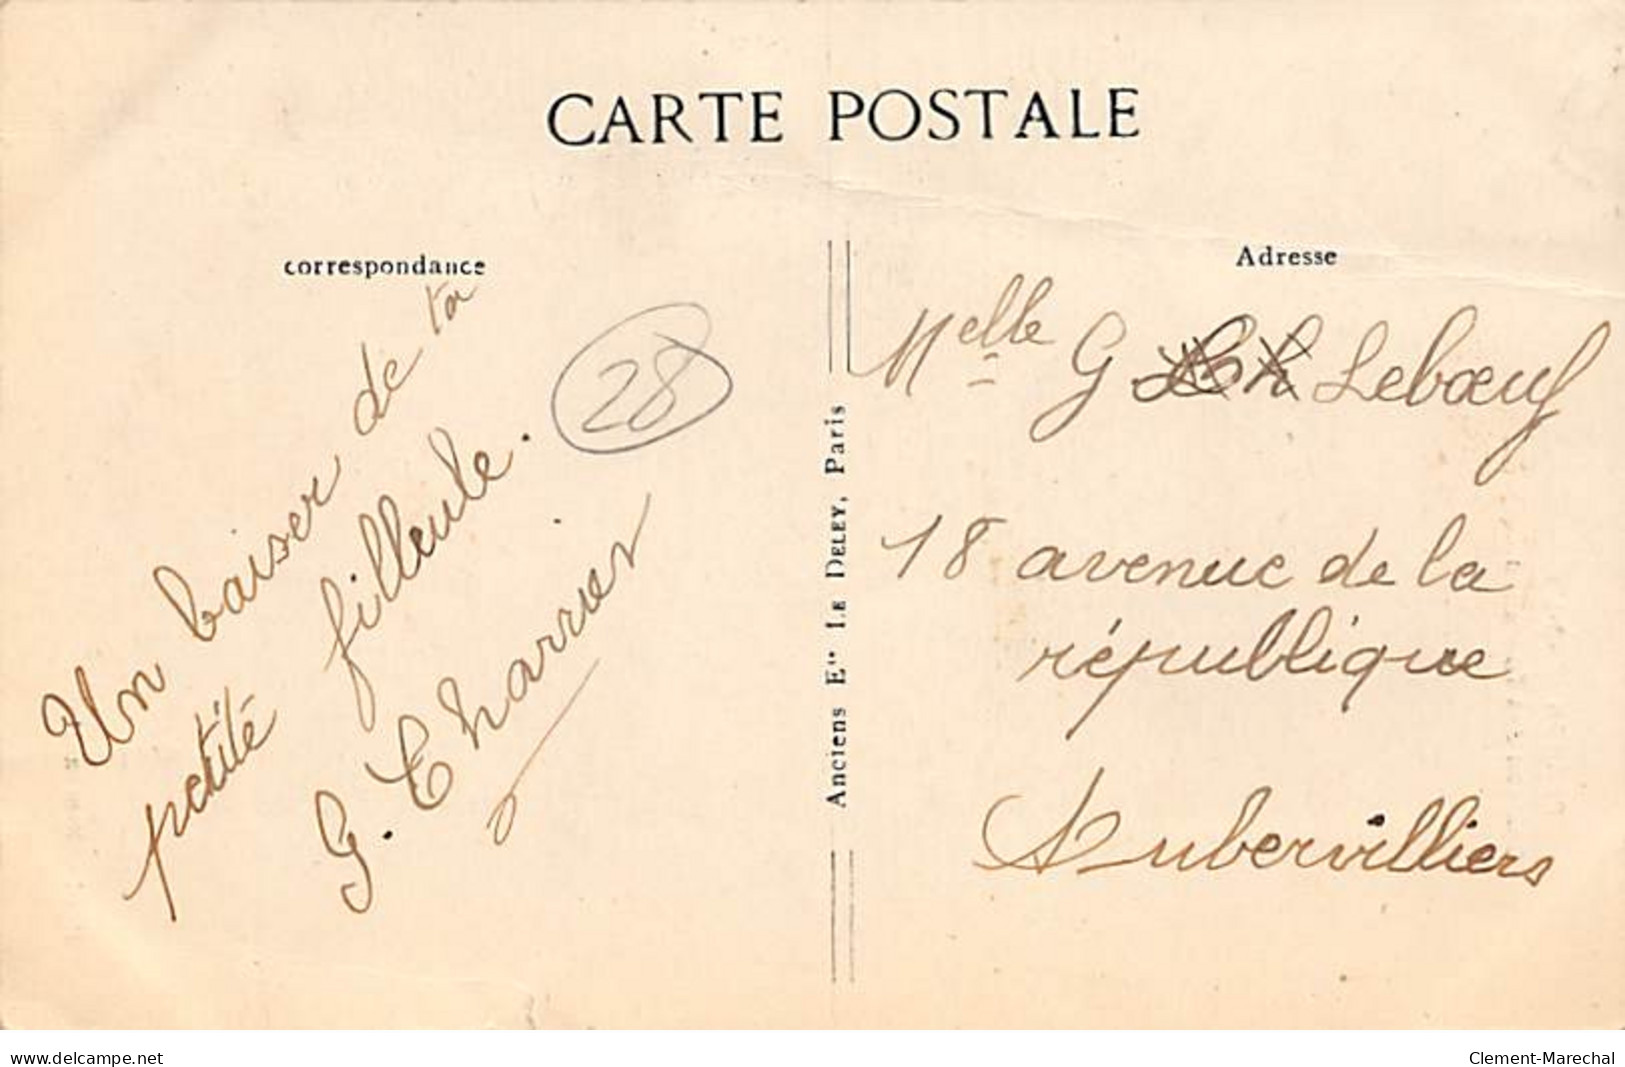 CARTE POSTALE
correspondance
Un baiser de ta
petite filleule.
G. Charrier
28
Anciens Ets LE DELEY, Paris
Adresse
Melle G Lebœuf
18 avenue de la
république
Aubervilliers
www.delcampe.net
Clement-Marechal